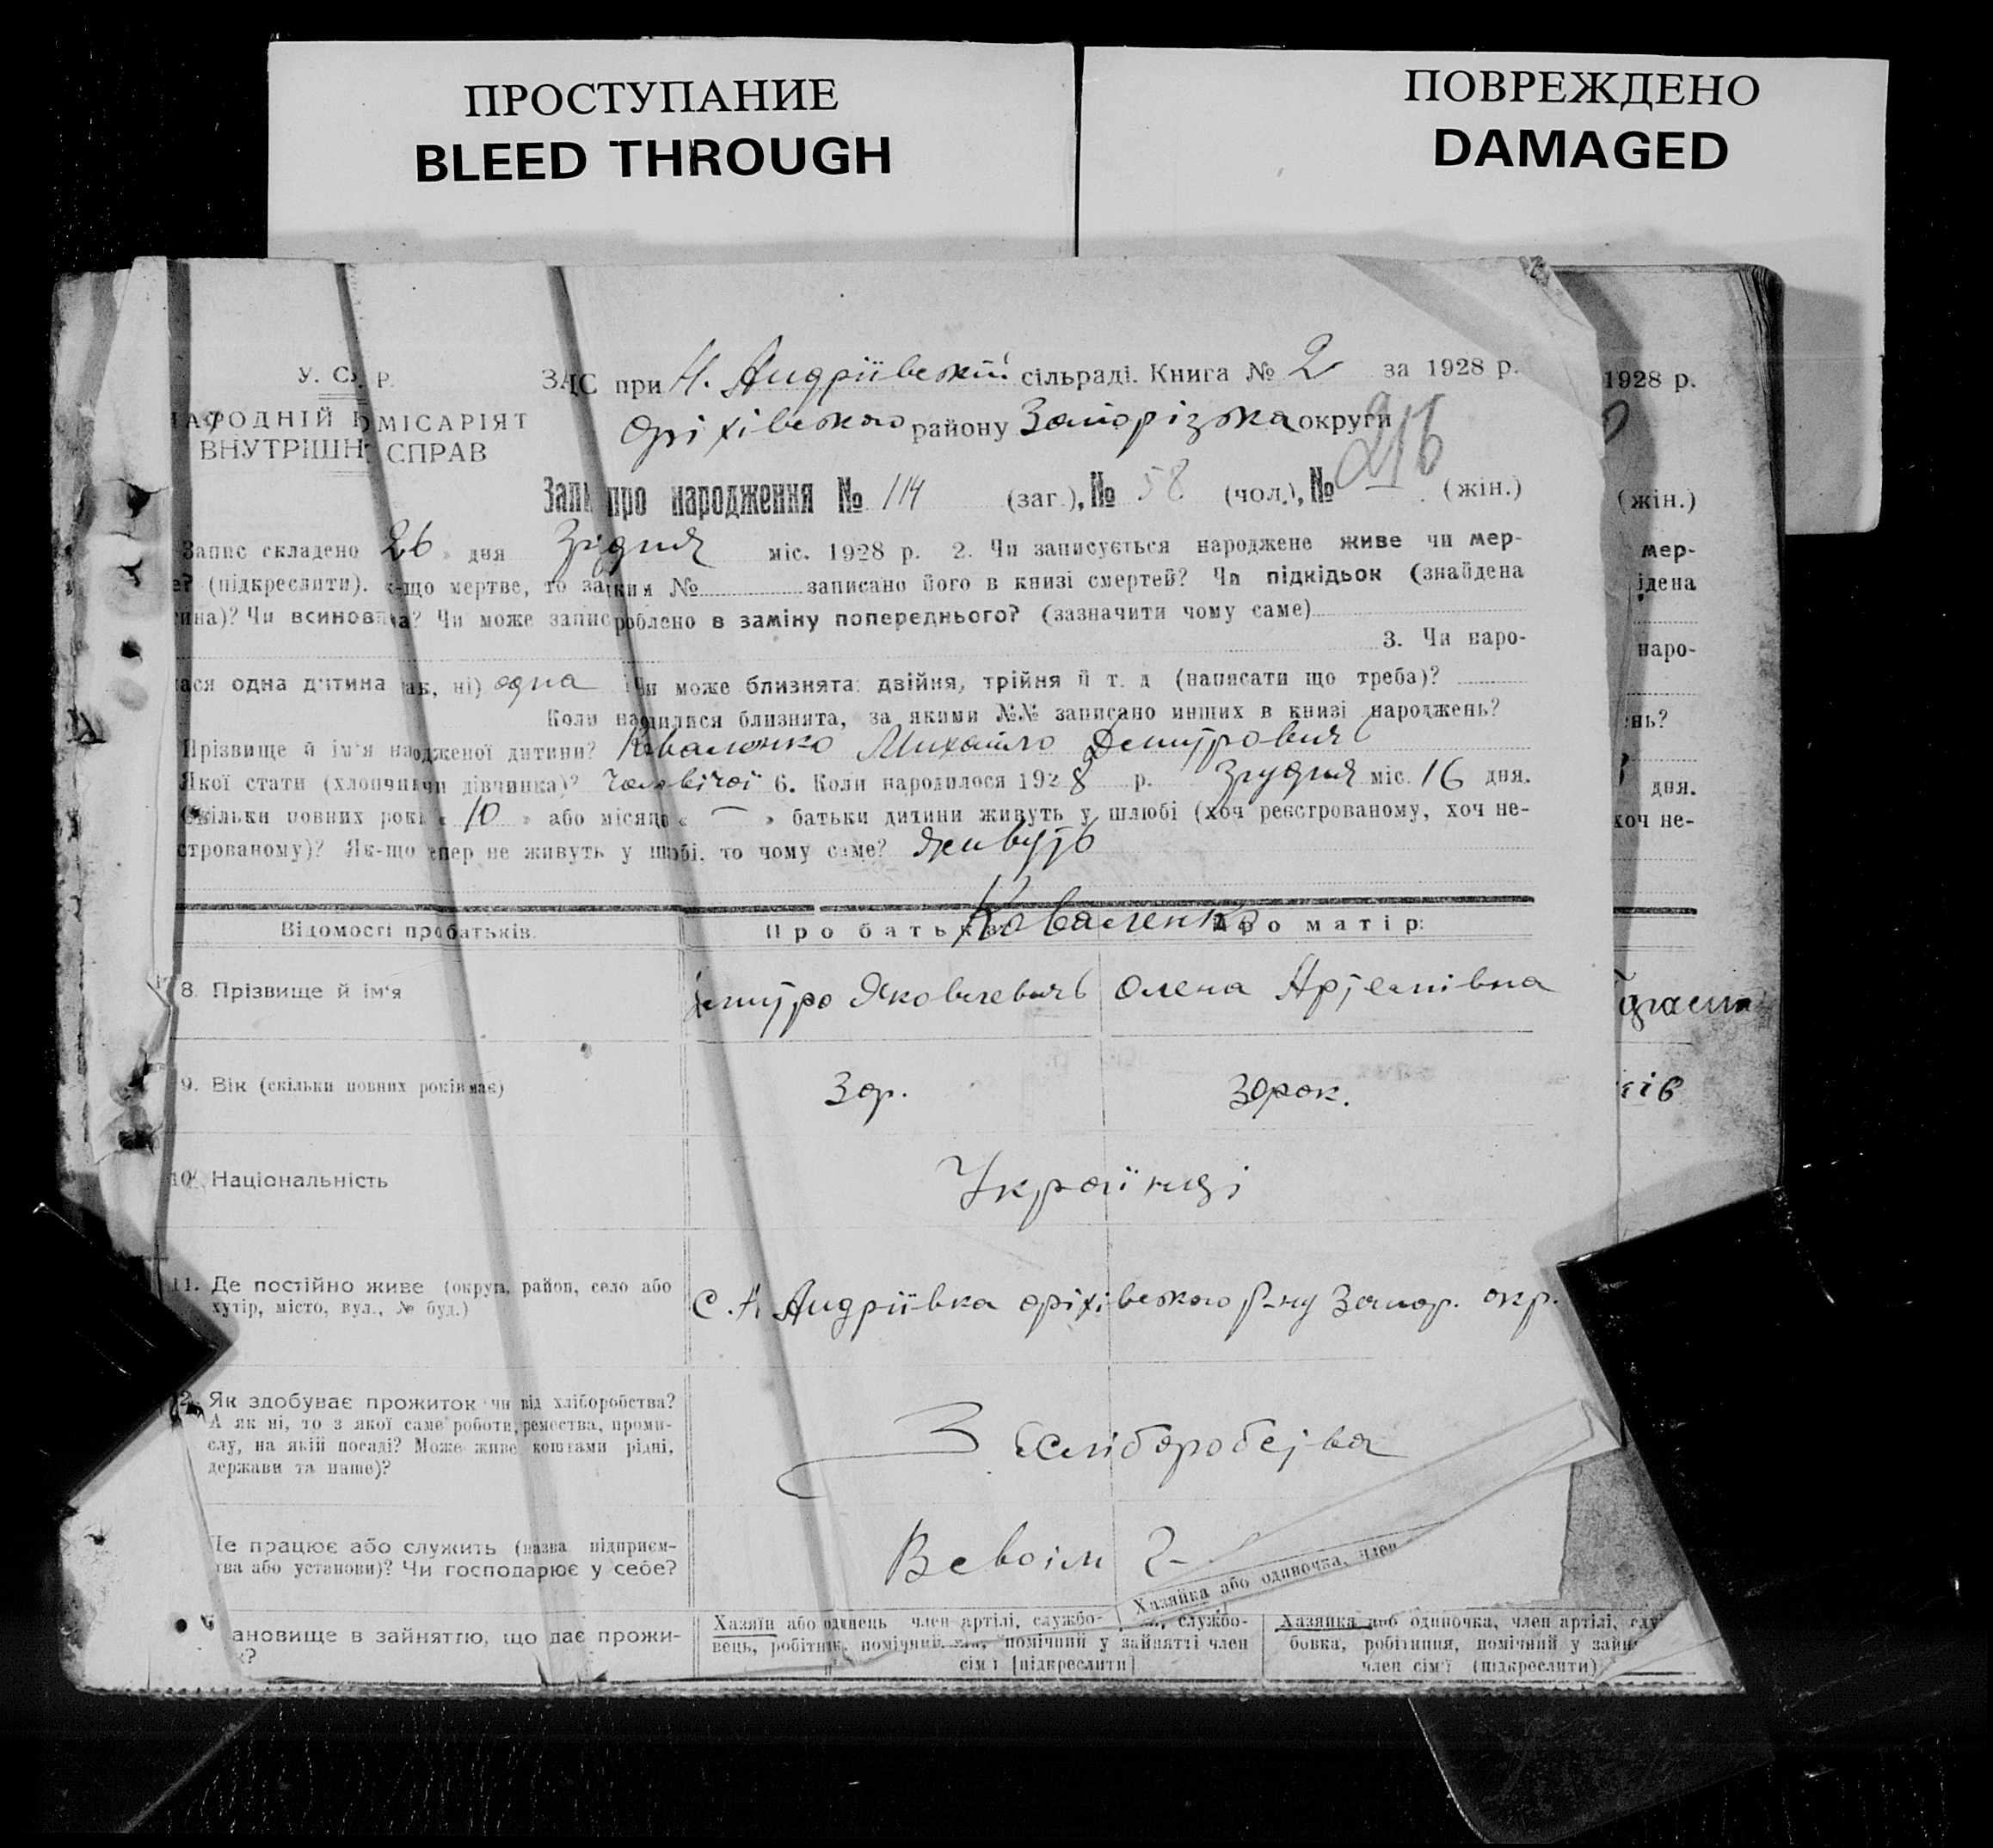 ПРОСТУПАНИЕ
BLEED THROUGH
ПОВРЕЖДЕНО
DAMAGED
У. С. Р.
НАРОДНІЙ КОМІСАРІЯТ
ВНУТРІШН. СПРАВ
ЗАС при Н. Андріївській сільраді. Книга № 2 за 1928 р.
Оріхівського району Запорізька округи
216
Запис про народження № 114 (заг.), № 58 (чол.), № (жін.)
Запис складено 26 » дня Грудня міс. 1928 р. 2. Чи записується народжене живе чи мер-
(підкреслити). Як-що мертве, то за яким № записано його в книзі смертей? Чи підкідьок (знайдена
дитина)? Чи всиновлена? Чи може запис роблено в заміну попереднього? (зазначити чому саме)
3. Чи наро-
одна дитина (так, ні) одна Чи може близнята: двійня, трійня й т. д (написати що треба)?
Коли народилися близнята, за якими №№ записано инших в книзі народжень?
Прізвище й ім'я народженої дитини? Коваленко Михайло Дмитрович
Якої стати (хлопчик чи дівчинка)? чоловічої 6. Коли народилося 1928 р. Грудня міс. 16 дня.
Скільки повних років « 10 » або місяців « — » батьки дитини живуть у шлюбі (хоч реєстрованому, хоч не-
строваному)? Як-що тепер не живуть у шлюбі, то чому саме? Живуть
Коваленко
Відомості про батьків Про батька Про матір:
8. Прізвище й ім'я Дмитро Яковлевич Олена Артемівна
9. Вік (скільки повних років має) 30р. 30рок.
10. Національність Українці
11. Де постійно живе (округа, район, село або
хутір, місто, вул., № буд.)
С. Н Андріївка Оріхівського р-ну Запор. окр.
12. Як здобуває прожиток чи від хліборобства?
А як ні, то з якої саме роботи, ремества, проми-
слу, на якій посаді? Може живе коштами рідні,
держави та инше)?
З Хліборобства
Де працює або служить (назва підприєм-
тва або установи)? Чи господарює у себе?
В своїм
Хазяйка або одиночка, член
ановище в зайняттю, що дає прожи-
Хазяїн або одинець член артілі, службо-
вець, робітник, помічний
, службо-
помічний у зайнятті член
сім'ї [підкреслити]
Хазяйка або одиночка, член артілі, слу
бовка, робітниця, помічний у зайн
член сім'ї (підкреслити)
1928 р.
(жін.)
мер-
йдена
наро-
нь?
дня.
хоч не-